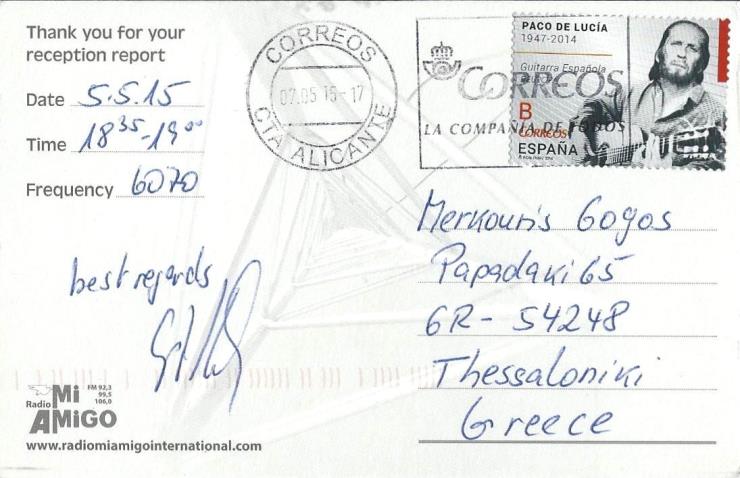 Thank you for your
reception report
Date 5.5.15
Time 18³⁵-19⁰⁰
Frequency 6070
best regards
Radio Mi AMiGO
FM 92,3
99,5
106,0
www.radiomiamigointernational.com
CORREOS
07.05 15-17
CTA ALICANTE
CORREOS
LA COMPAÑIA DE TODOS
PACO DE LUCÍA
1947-2014
Guitarra Española
B
CORREOS
ESPAÑA
Merkouris Gogos
Papadaki 65
GR- 54248
Thessaloniki
Greece